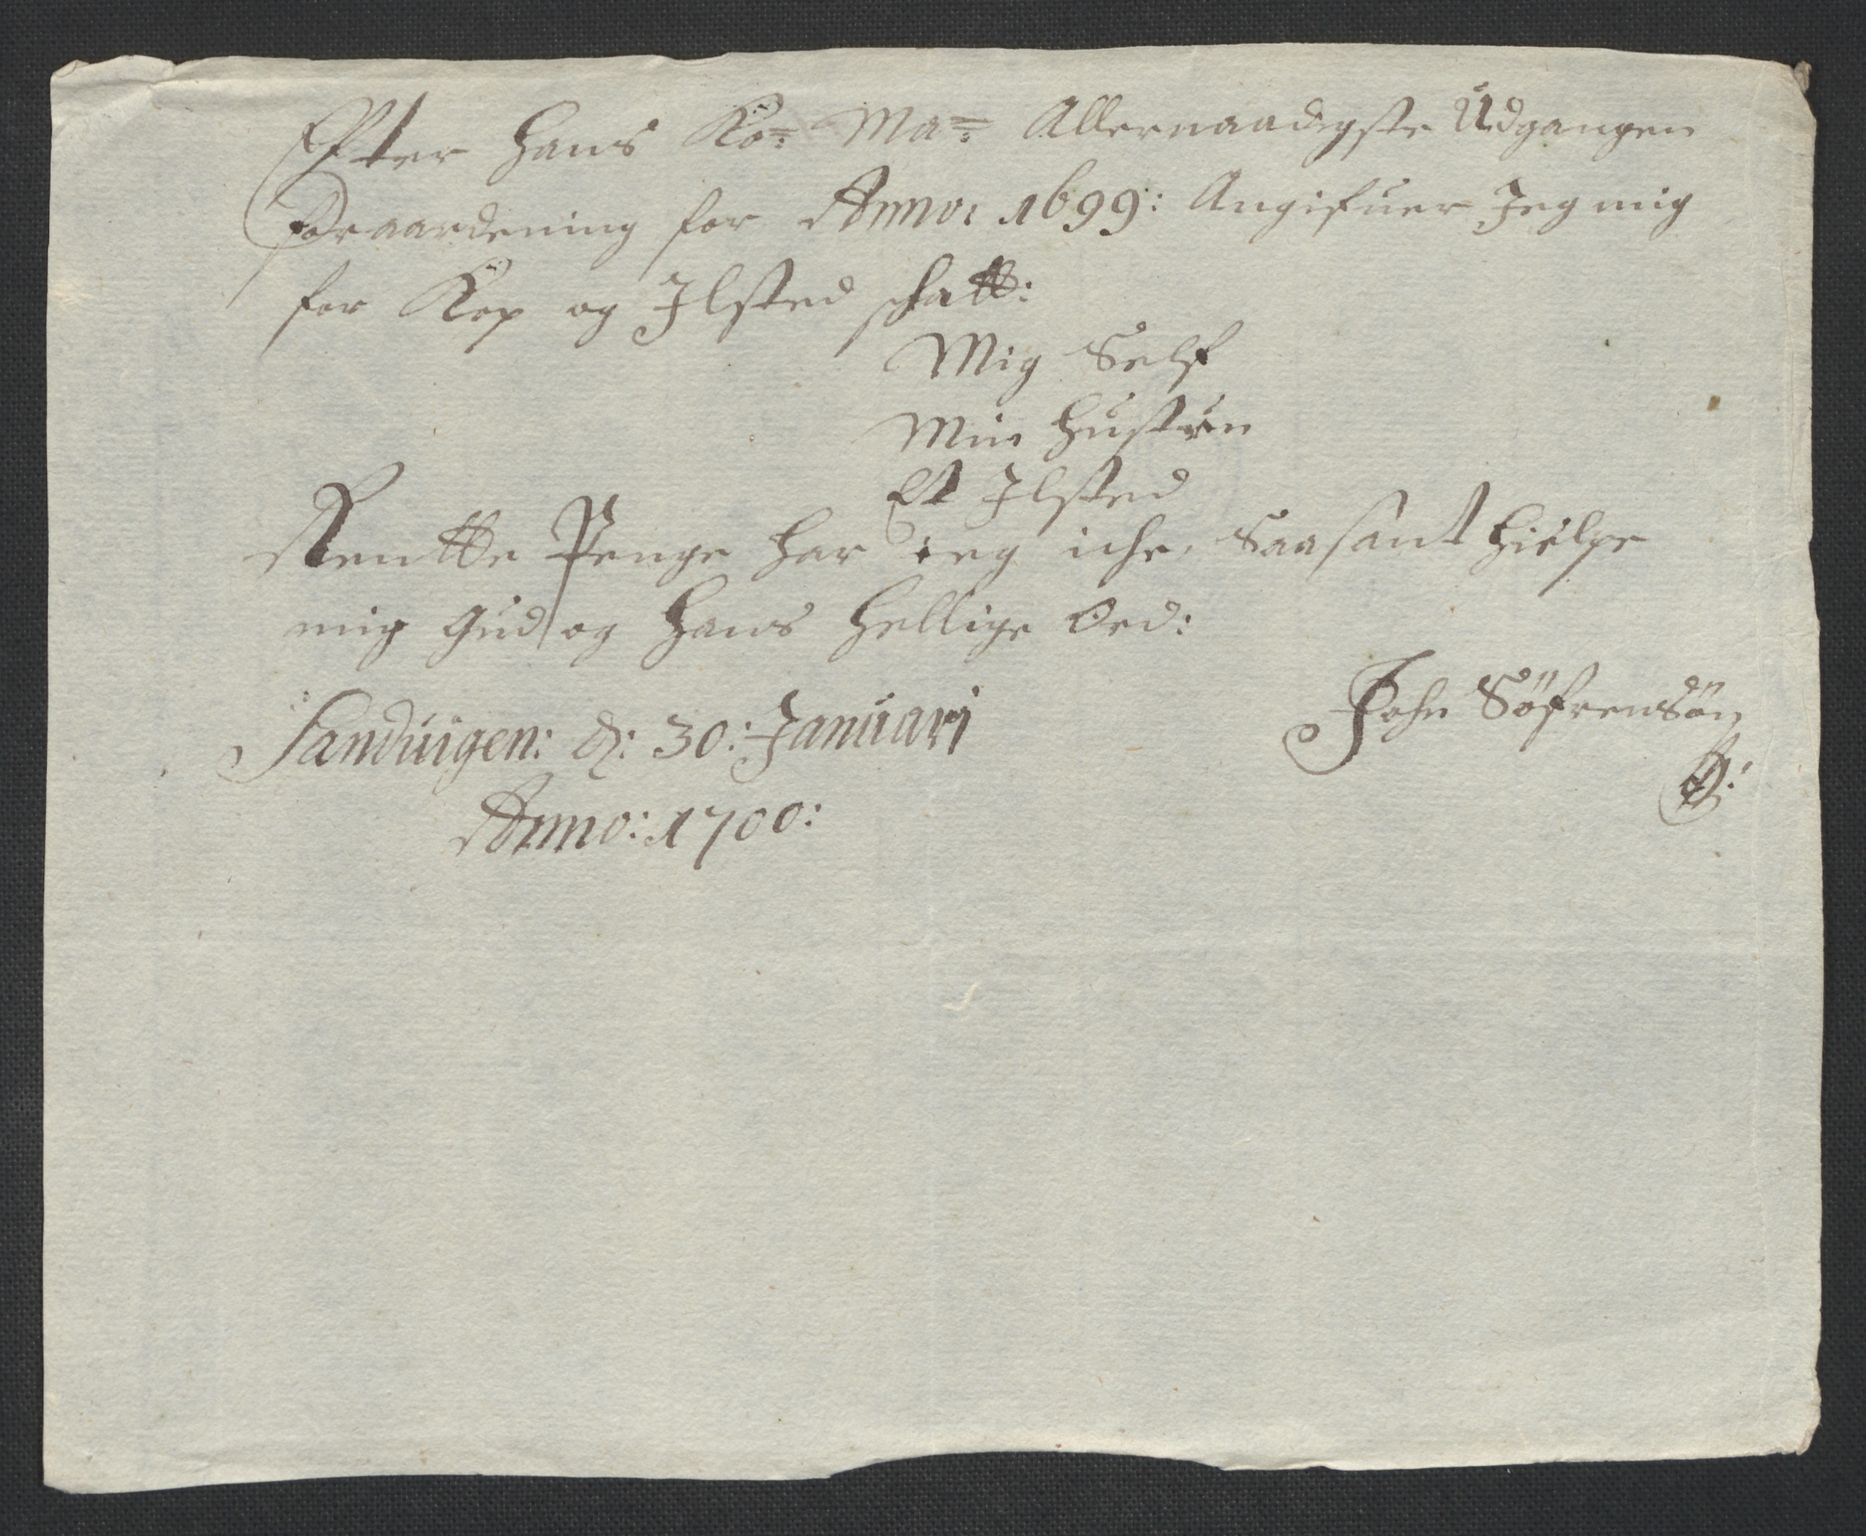 Efter Hans Ko: Ma: Allernaadigste Udgangen
Foraardening for Anno: 1699: Angifuer Jeg mig
for Kop og Ilsted schatt:
Mig Self
Min Hustru
Et Ilsted
Rentte Penge har ieg iche, Saasant hielpe
mig Gud og Hans Hellige Ord:
Sanduigen: d: 30: Januari
John Söfrensön
Anno: 1700: